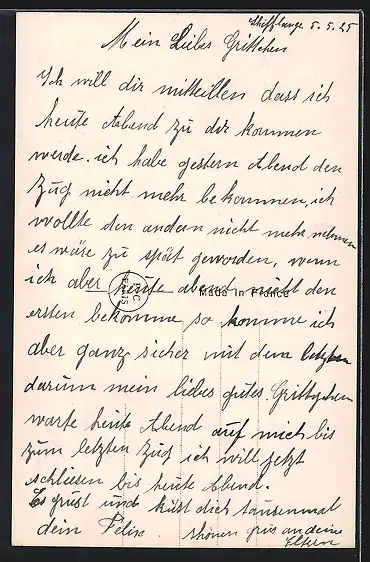 Schifflange. 5.5.25
Mein Liebes Grittchen
Ich will dir mitteillen dass ich
heute Abend zu dir kommen
werde. ich habe gestern Abend den
Zug nicht mehr bekommen, ich
wollte den andern nicht mehr nehmen
es wäre zu spät geworden, wenn
ich aber heute abend nicht den
Made in France
ersten bekomme so komme ich
aber ganz sicher mit dem letzten
darum mein liebes gutes Grittchen
warte heute Abend auf mich bis
zum letzten Zug ich will jetzt
schliesen bis heute Abend.
Es grust und küst dich tausenmal
dein Felix shönen grus an deine
Eltern